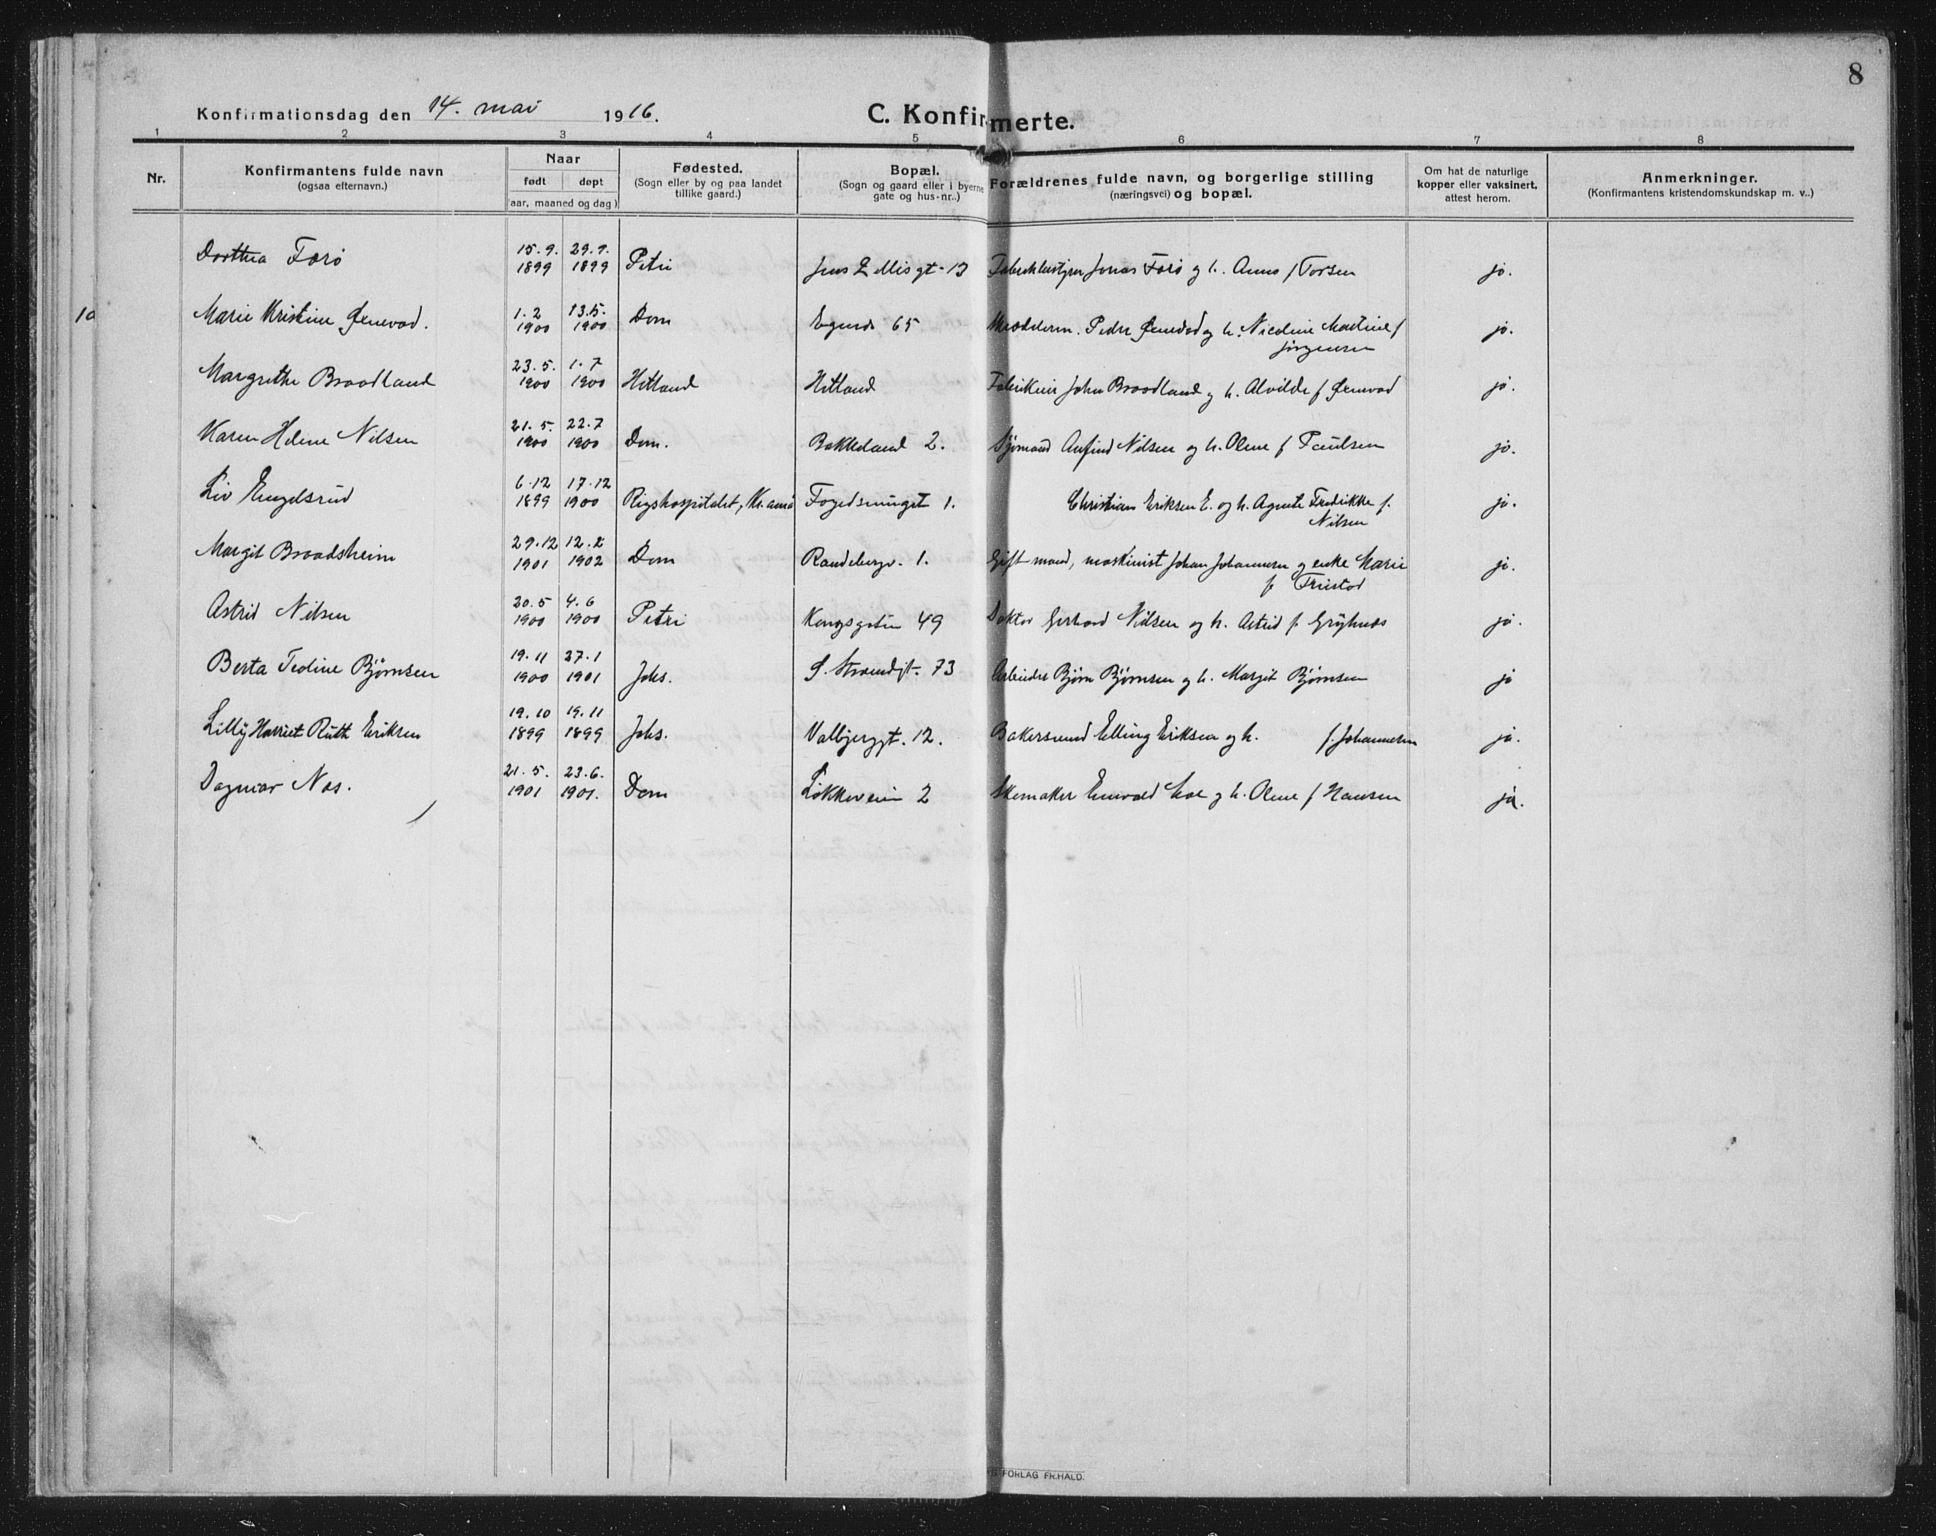 8
Konfirmationsdag den 14. mai 1916.
C. Konfirmerte.
1 2 3 4 5 6 7 8
Nr.
Konfirmantens fulde navn
(ogsaa efternavn.)
Naar
født døpt
(aar, maaned og dag)
Fødested.
(Sogn eller by og paa landet
tillike gaard.)
Bopæl.
(Sogn og gaard eller i byerne
gate og hus-nr..)
Forældrenes fulde navn, og borgerlige stilling
(næringsvei) og bopæl.
Om hat de naturlige
kopper eller vaksinert,
attest herom.
Anmerkninger.
(Konfirmantens kristendomskundskap m. v..)
Dorthea Forø 15.9. 1899 29.9. 1899 Petri Jens Zetlitsgt. 13 Jonas Forø og h. Anna f Torsen ja.
10
Marie Kristine Ørnevad. 1.2 1900 13.5. 1900 Dom 65 Peder og h. Nicoline Martine f
Jørgensen ja.
Margrethe Braadland 23.5. 1900 1.7 1900 Hetland Hetland Fabrikeier John Braadland og h. Alvilde f Ørnevad ja.
Karen Helene Nilsen 21.5. 1900 22.7 1900 Dom. Bakkeland 2. Sjømand Anfind Nilsen og h. Olene f Paulsen ja.
Liv Engelsrud 6.12 1899 17.12 1900 Rigshospitalet, Kr.ania Fogedsmuget 1. Christian Eriksen E. og h. Agnete Fredrikke f.
Nilsen ja.
Margit Braadsheim 29.12 1901 12.2 1902 Dom Randebergv. 1. Gift mand, maskinist Johan Johannesen og enke Marie
f. Fristad ja.
Astrid Nilsen 20.5 1900 4.6 1900 Petri Kongsgaten 49 Doktor Gerhard Nilsen og h. Astrid f. ja.
Berta Teoline Bjørnsen 19.11 1900 27.1 1901 Johs. S. Strandgt. 73 Arbeider Bjørn Bjørnsen og h. Margit Bjørnsen ja
Lilly Harriet Ruth Eriksen 19.10 1899 19.11 1899 Johs. Valbjerggt. 12. Bakersvend Elling Eriksen og h. f. Johannesen ja.
Dagmar Næs. 21.5. 1901 23.6. 1901. Dom Løkkeveien 2 Skomaker og h. Olene f Hansen ja.
FORLAG FR.HALD.